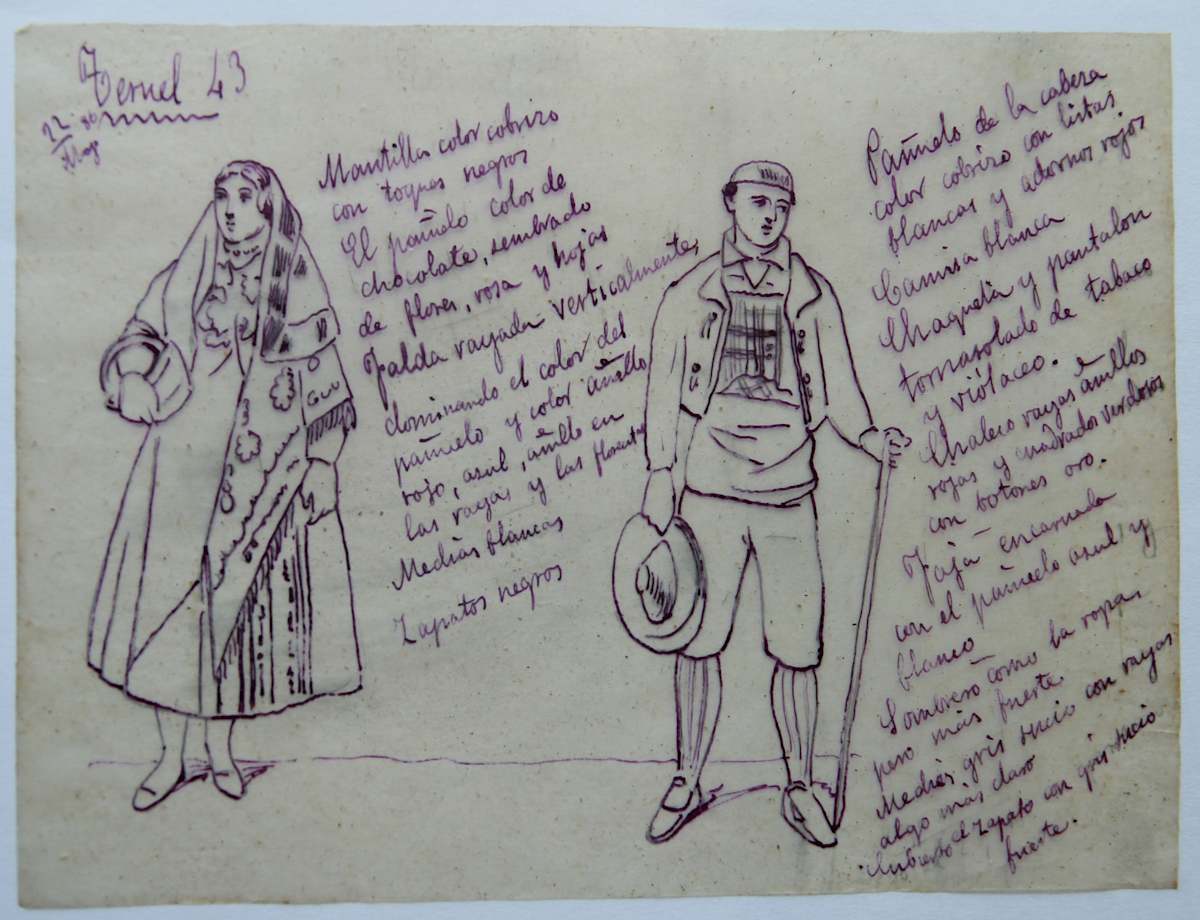 Teruel 43
22
Mantilla color cobrizo
con toques negros
El pañuelo color de
chocolate, sembrado
de flores, rosa y hojas
Falda rayada verticalmente,
dominando el color del
pañuelo y color añillo
rojo, azul, añillo en
las rayas y las
Medias blancas
Zapatos negros
Pañuelo de la cabeza
color cobrizo con listas
blancas y adornos rojos
Camisa blanca
Chaqueta y pantalon
tornasolado de tabaco
y violaceo.
Chaleco rayas añillos
rojas y cuadrados verdosos
con botones oro.
Faja encarnada
con el pañuelo azul y
blanco
Sombrero como la ropa,
pero más fuerte.
Medias gris sucio con rayas
algo más claro
el zapato con gris sucio
fuerte.